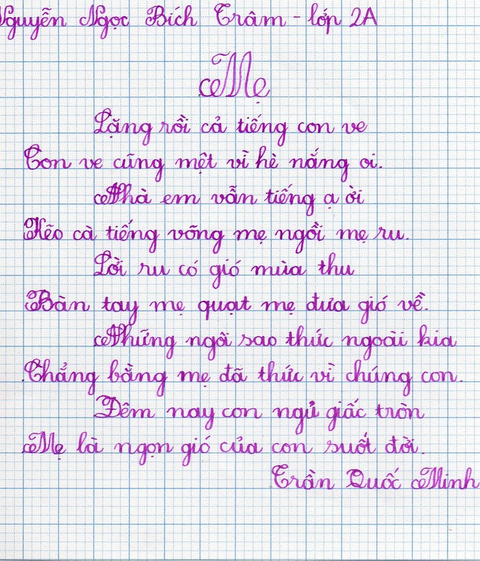 Nguyễn Ngọc Bích Trâm - lớp 2A
Mẹ
Lặng rồi cả tiếng con ve
Con ve cũng mệt vì hè nắng oi.
Nhà em vẫn tiếng ạ ời
Kẽo cà tiếng võng mẹ ngồi mẹ ru.
Lời ru có gió mùa thu
Bàn tay mẹ quạt mẹ đưa gió về.
Những ngôi sao thức ngoài kia
Chẳng bằng mẹ đã thức vì chúng con.
Đêm nay con ngủ giấc tròn
Mẹ là ngọn gió của con suốt đời.
Trần Quốc Minh